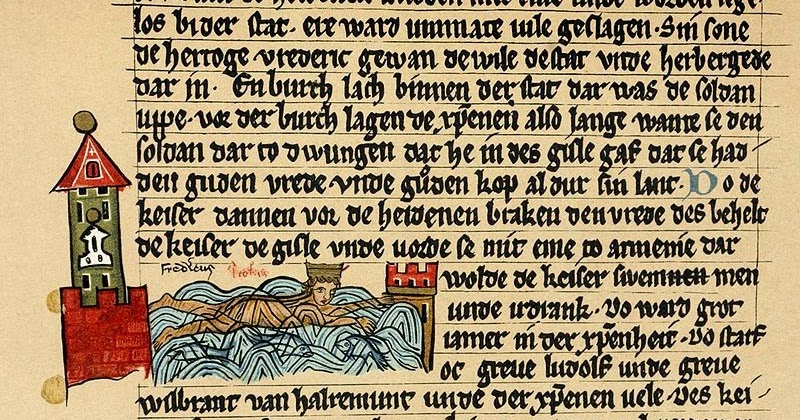 los bider stat. ere ward unmate vile geslagen. Sin sone
de hertoge vrederic gewan de wile de stat unde herbergede
dar in. En burch lach binnen der stat dar was de soldan
uppe. vor der burch lagen de xp̄enen also lange wante se den
soldan dar to dwungen dat he in des gisle gaf dat se had
den guden vrede unde guden kop al dur sin lant. Do de
keiser dannen vor de heidenen braken den vrede des behelt
de keiser de gisle unde vorde se mit eme to armenie dar
wolde de keiser swemmen
unde irdrank. Do ward grot
iamer in der xp̄enheit. Do starf
oc greve ludolf unde greve
wilbrant van halremunt unde der xp̄enen vele. Des kei
Fredericus